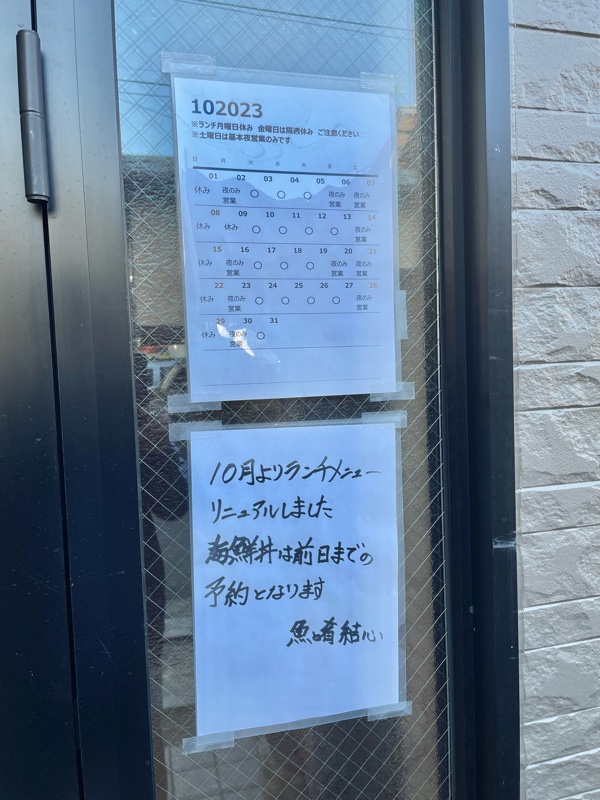 102023
※ランチ月曜日休み 金曜日は隔週休み ご注意ください
※土曜日は基本夜営業のみです
日 月 火 水 木 金 土
01 02 03 04 05 06 07
休み 夜のみ営業 ○ ○ ○ 夜のみ営業 夜のみ営業
08 09 10 11 12 13 14
休み 休み ○ ○ ○ ○ 夜のみ営業
15 16 17 18 19 20 21
休み 夜のみ営業 ○ ○ ○ 夜のみ営業 夜のみ営業
22 23 24 25 26 27 28
休み 夜のみ営業 ○ ○ ○ ○ 夜のみ営業
29 30 31
休み 夜のみ営業 ○
10月よりランチメニュー
リニュアルしました
海鮮丼は前日までの
予約となります
魚と肴 結心